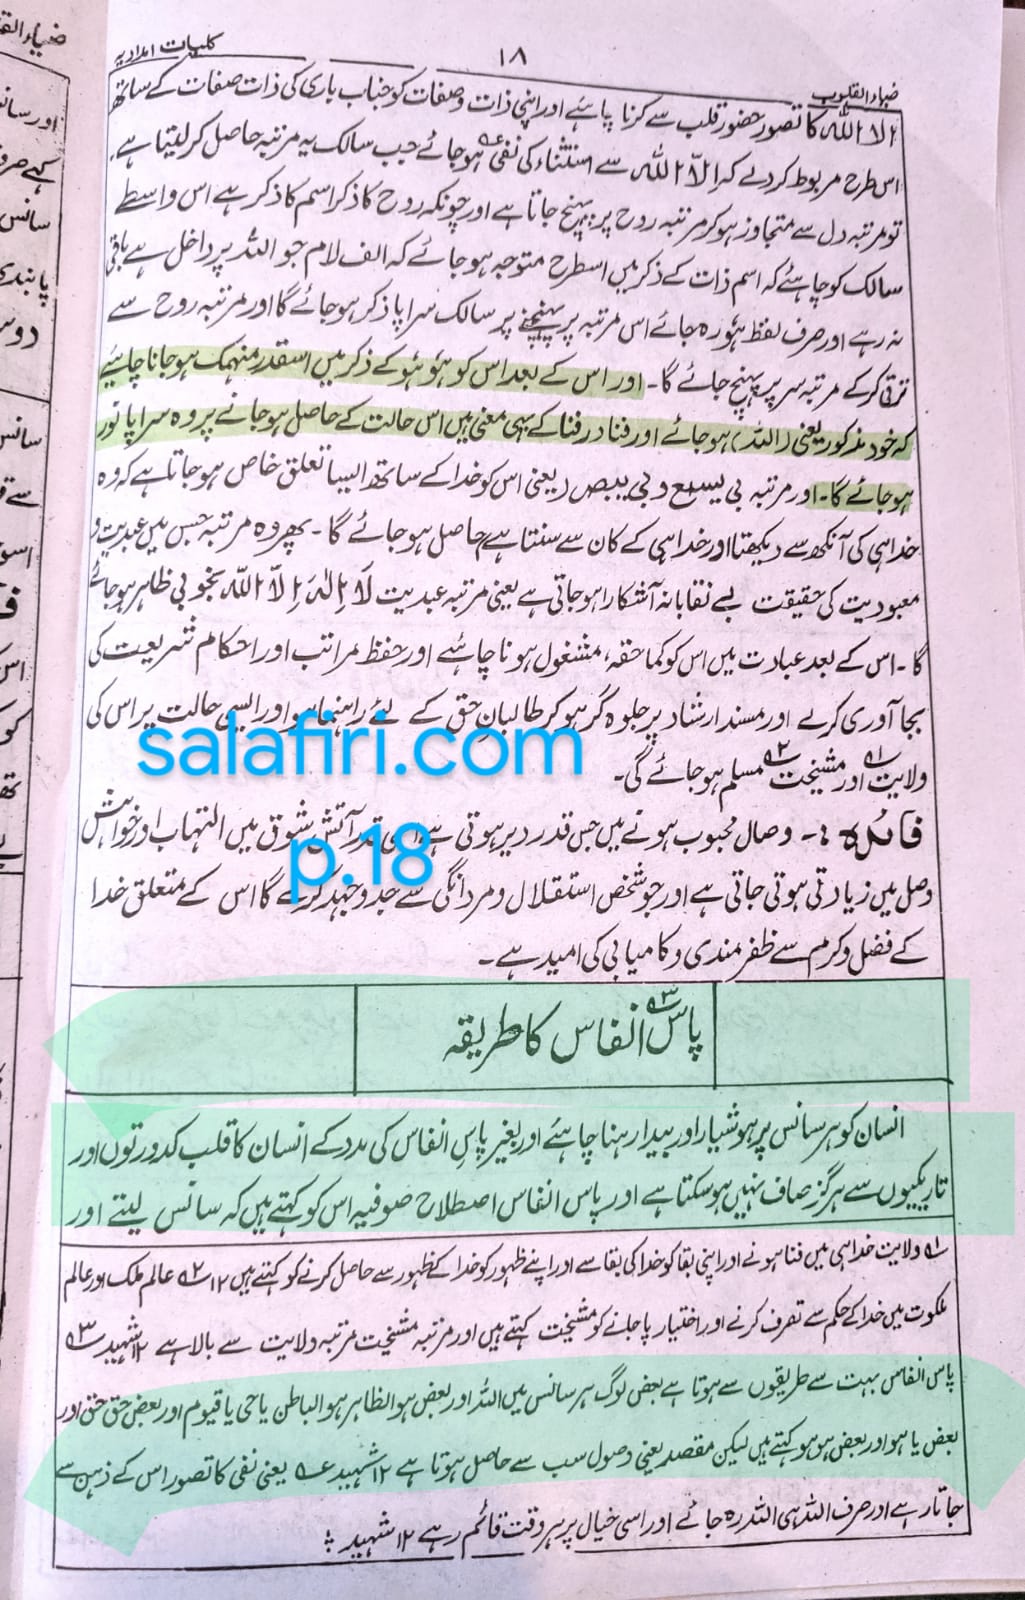 ضیاء القلوب
۱۸
کلیات امدادیہ
الا اللہ کا تصور حضور قلب سے کرنا چاہئے اور اپنی ذات وصفات کو جناب باری کی ذات صفات کے ساتھ
اس طرح مربوط کردے کہ اِلّا اللہ سے استثناء کی نفی ہوجائے جب سالک یہ مرتبہ حاصل کرلیتا ہے
تو مرتبہ دل سے متجاوز ہوکر مرتبہ روح پر پہنچ جاتا ہے اور چونکہ روح کا ذکر اسم کا ذکر ہے اس واسطے
سالک کو چاہئے کہ اسم ذات کے ذکر میں اسطرح متوجہ ہوجائے کہ الف لام جو اللہ پر داخل ہے باقی
نہ رہے اور صرف لفظ ہو رہ جائے اس مرتبہ پر پہنچنے پر سالک سراپا ذکر ہوجائے گا اور مرتبہ روح سے
ترقی کرکے مرتبہ سر پر پہنچ جائے گا۔ اور اس کے بعد اس کو ہو ہو کے ذکر میں اسقدر منہمک ہوجانا چاہئیے
کہ خود مذکور یعنی (اللہ) ہوجائے اور فنا در فنا کے یہی معنی ہیں اس حالت کے حاصل ہوجانے پر وہ سراپا نور
ہوجائے گا۔ اور مرتبہ بی یسمع و بی یبصر (یعنی اس کو خدا کے ساتھ ایسا تعلق خاص ہوجاتا ہے کہ وہ
خدا ہی کی آنکھ سے دیکھتا اور خدا ہی کے کان سے سنتا ہے) حاصل ہوجائے گا۔ پھر وہ مرتبہ جس میں عبدیت و
معبودیت کی حقیقت بے نقابانہ آشکارا ہوجاتی ہے یعنی مرتبہ عبدیت لَا اِلٰہَ اِلَّا اللہ بخوبی ظاہر ہوجائے
گا۔ اس کے بعد عبادت میں اس کو کما حقہ، مشغول ہونا چاہئے اور حفظ مراتب اور احکام شریعت کی
بجا آوری کرے اور مسند ارشاد پر جلوہ گر ہوکر طالبان حق کے لئے راہنما ہو اور ایسی حالت پر اس کی
ولایت ۱ اور مشیخت ۲ مسلم ہوجائے گی۔
salafiri.com
فائدہ:۔ وصال محبوب ہونے میں جس قدر دیر ہوتی ہے اسی قدر آتش شوق میں التہاب اور خواہش
p.18
وصل میں زیادتی ہوتی جاتی ہے اور جو شخص استقلال و مردانگی سے جد و جہد کرے گا اس کے متعلق خدا
کے فضل و کرم سے ظفر مندی و کامیابی کی امید ہے۔
پاس ۳ انفاس کا طریقہ
انسان کو ہر سانس پر ہوشیار اور بیدار رہنا چاہئے اور بغیر پاس انفاس کی مدد کے انسان کا قلب کدورتوں اور
تاریکیوں سے ہرگز صاف نہیں ہوسکتا ہے اور پاس انفاس اصطلاح صوفیہ اس کو کہتے ہیں کہ سانس لیتے اور
۱ ولایت خدا ہی میں فنا ہونے اور اپنی بقا کو خدا کی بقا سے اور اپنے ظہور کو خدا کے ظہور سے حاصل کرنے کو کہتے ہیں ۱۲ ۲ عالم ملک اور عالم
ملکوت میں خدا کے حکم سے تصرف کرنے اور اختیار پا جانے کو مشیخت کہتے ہیں اور مرتبہ مشیخت مرتبہ ولایت سے بالا ہے ۱۲ شہید ۳
پاس انفاس بہت سے طریقوں سے ہوتا ہے بعض لوگ ہر سانس میں اللہ اور بعض ہو الظاہر ہو الباطن یا حی یا قیوم اور بعض حق حق اور
بعض یا ہو اور بعض ہو ہو کہتے ہیں لیکن مقصد یعنی وصول سب سے حاصل ہوتا ہے ۱۲ شہید عہ یعنی نفی کا تصور اس کے ذہن سے
جاتا رہے اور صرف اللہ ہی اللہ رہ جائے اور اسی خیال پر ہر وقت قائم رہے ۱۲ شہید
ضیاء القلوب
سانس
پابندی
دوسر
سانس